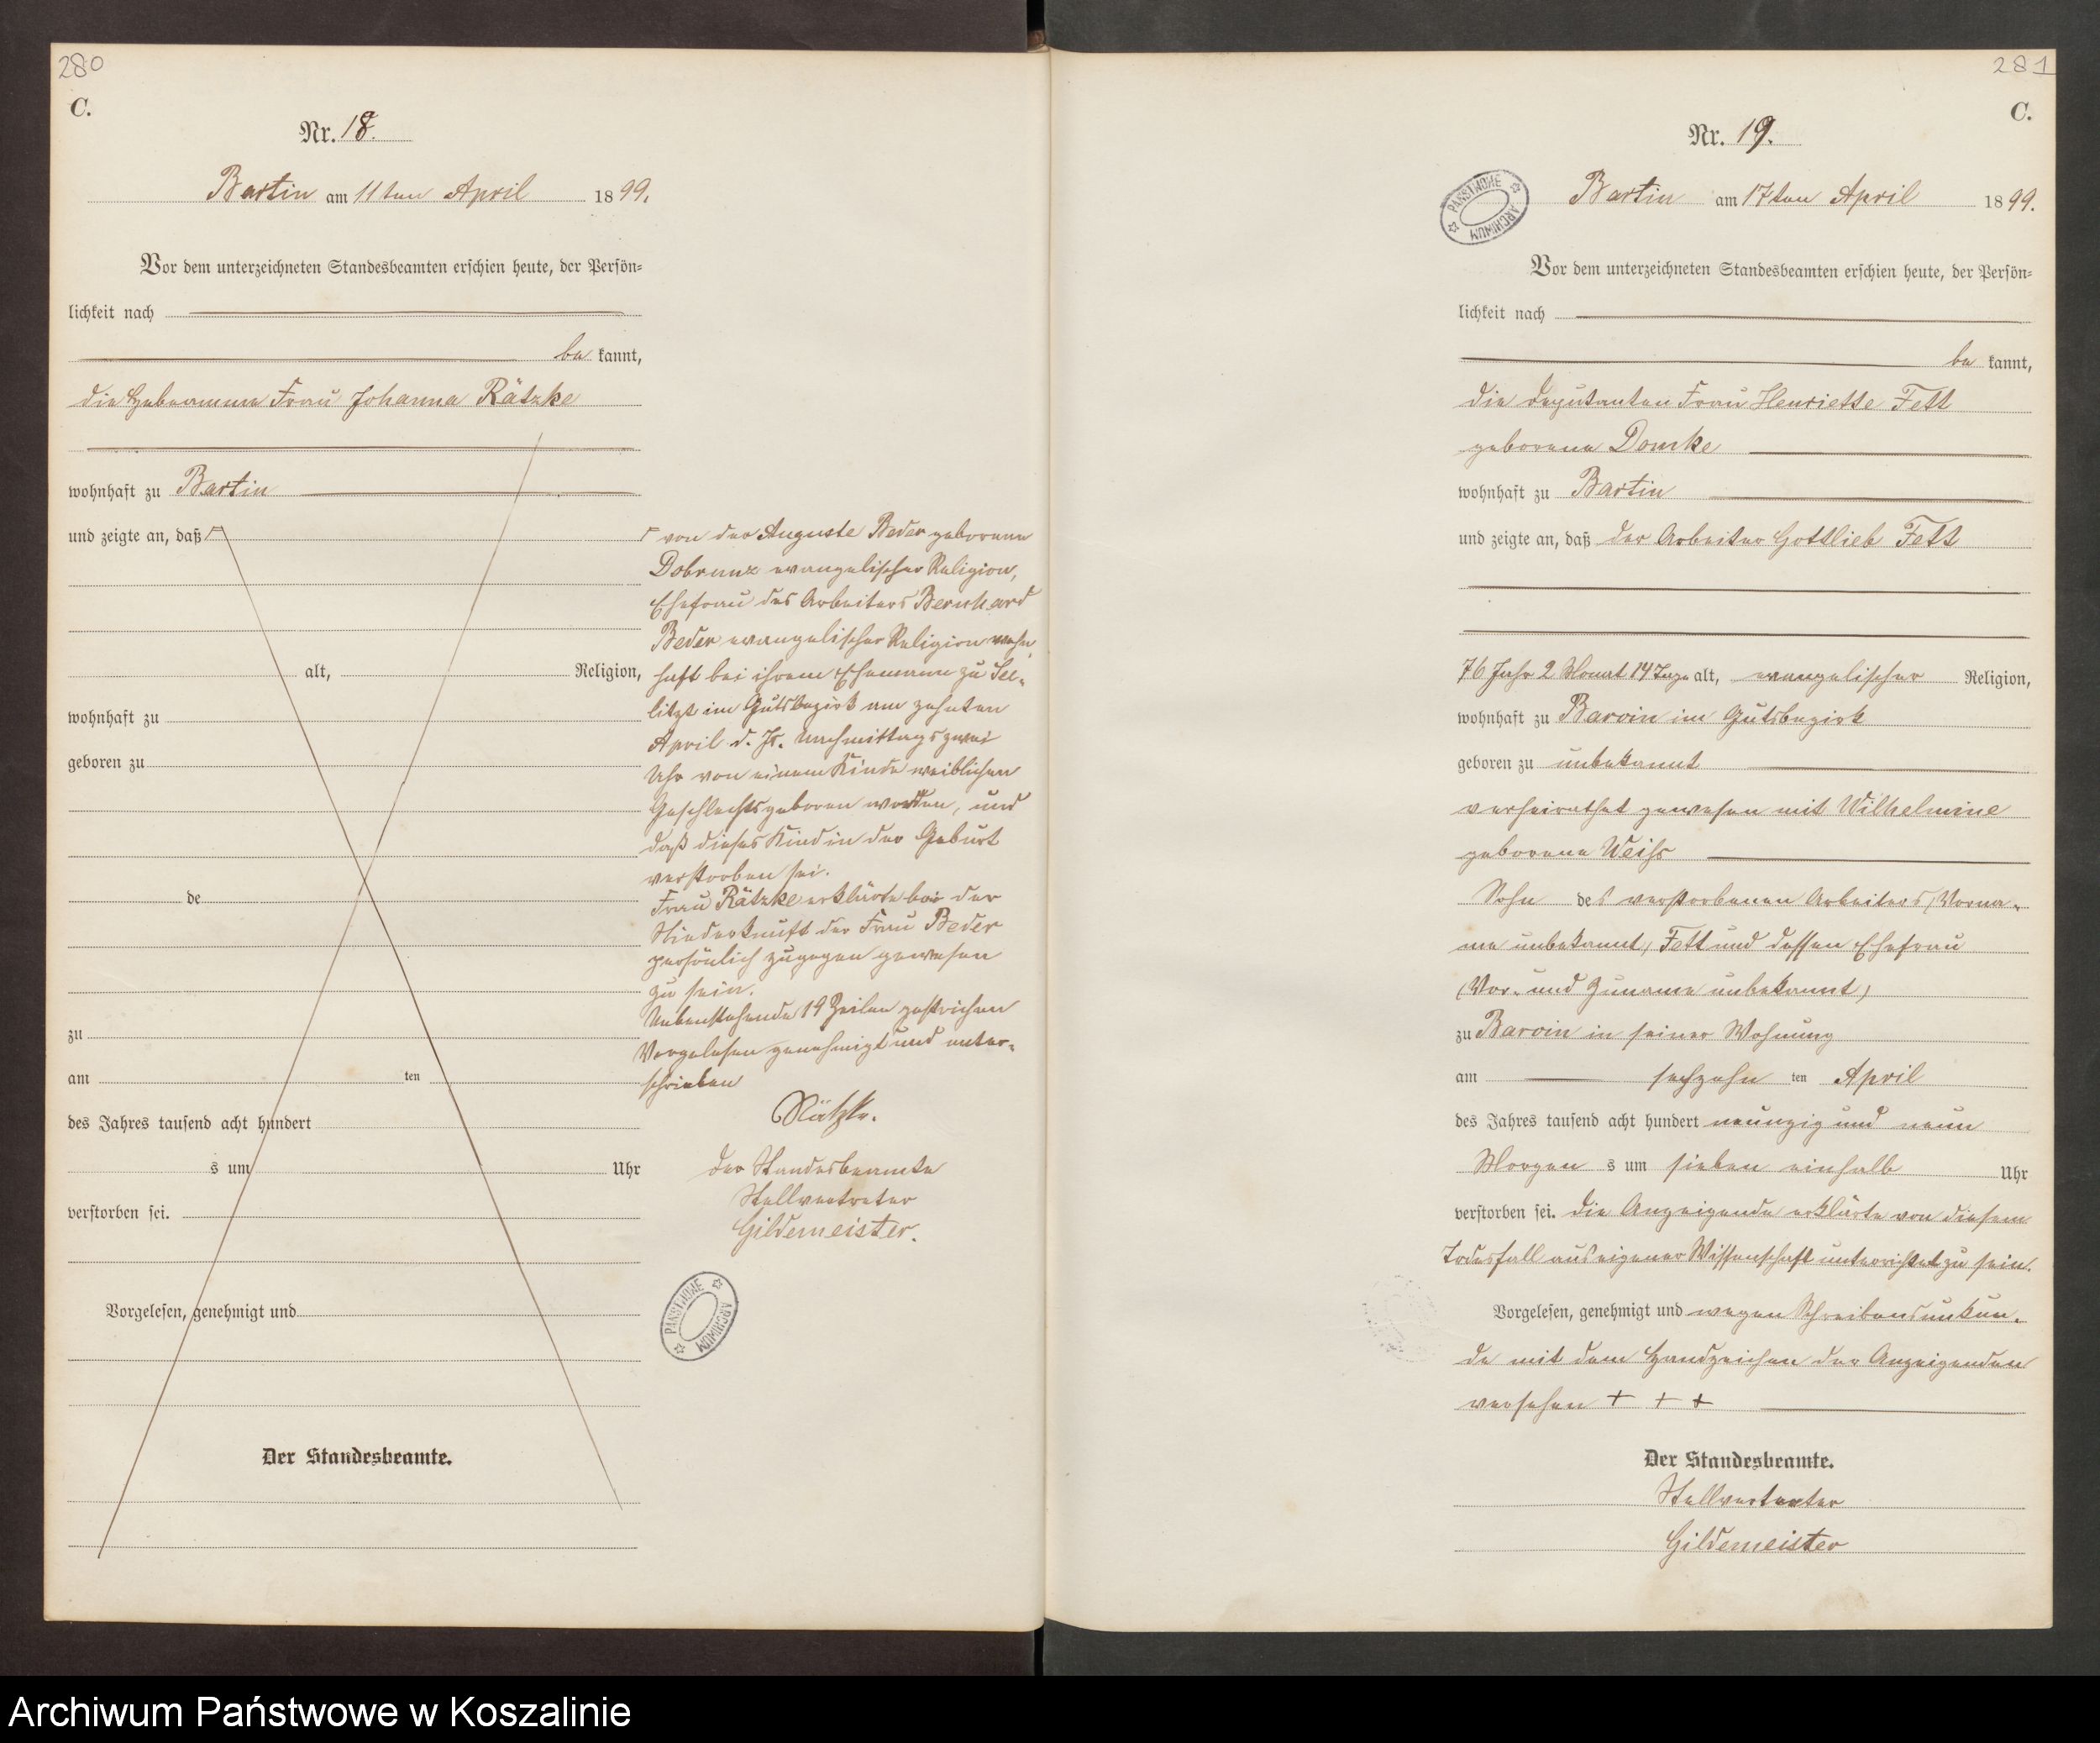 280
C.
Nr. 18.
Bartin am 11ten April 1899.
Vor dem unterzeichneten Standesbeamten erschien heute, der Persön=
lichkeit nach
be kannt,
die Hebeamme Frau Johanna Rätzke
wohnhaft zu Bartin
und zeigte an, daß
alt, Religion,
wohnhaft zu
geboren zu
de
zu
am ten
des Jahres tausend acht hundert
s um Uhr
verstorben sei.
Vorgelesen, genehmigt und
Der Standesbeamte.
von der Auguste Beder geborene
Dobrunz evangelischer Religion,
Ehefrau des Arbeiters Bernhard
Beder evangelischer Religion wohn
haft bei ihrem Ehemann zu See-
litzt im Gutsbezirk am zehnten
April d. Js. nachmittags zwei
Uhr von einem Kinde weiblichen
Geschlechts geboren worden, und
daß dieses Kind in der Geburt
verstorben sei.
Frau Rätzke erklärte bei der
Niederkunft der Frau Beder
persönlich zugegen gewesen
zu sein.
Nebenstehende 19 Zeilen gestrichen
Vorgelesen genehmigt und unter-
schrieben
Rätzke.
Der Standesbeamte
Stellvertreter
Gildemeister.
PAŃSTWOWE ARCHIWUM
281
C.
Nr. 19.
PAŃSTWOWE ARCHIWUM
Bartin am 17ten April 1899.
Vor dem unterzeichneten Standesbeamten erschien heute, der Persön=
lichkeit nach
be kannt,
die Deputanten Frau Henriette Fett
geborene Domke
wohnhaft zu Bartin
und zeigte an, daß der Arbeiter Gottlieb Fett
76 Jahr 2 Monat 14 Tage alt, evangelischer Religion,
wohnhaft zu Barvin im Gutsbezirk
geboren zu unbekannt
verheirathet gewesen mit Wilhelmine
geborene Weiß
Sohn des verstorbenen Arbeiters (Vorna-
me unbekannt) Fett und dessen Ehefrau
(Vor- und Zuname unbekannt)
zu Barvin in seiner Wohnung
am sechzehn ten April
des Jahres tausend acht hundert neunzig und neun
Morgen s um sieben einhalb Uhr
verstorben sei. Die Anzeigende erklärte von diesem
Todesfall aus eigener Wissenschaft unterrichtet zu sein.
Vorgelesen, genehmigt und wegen Schreibensunkun-
de mit dem Handzeichen der Anzeigenden
versehen + + +
Der Standesbeamte.
Stellvertreter
Gildemeister
Archiwum Państwowe w Koszalinie